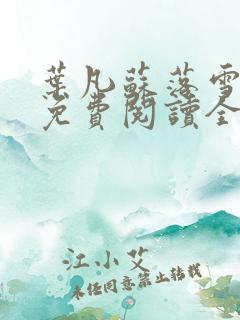 葉凡蘇落雪
免費閱讀全
江小艾
未經同意禁止轉載